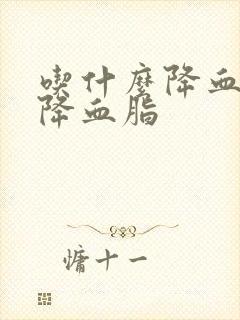 喫什麼降血
降血脂
慵十一